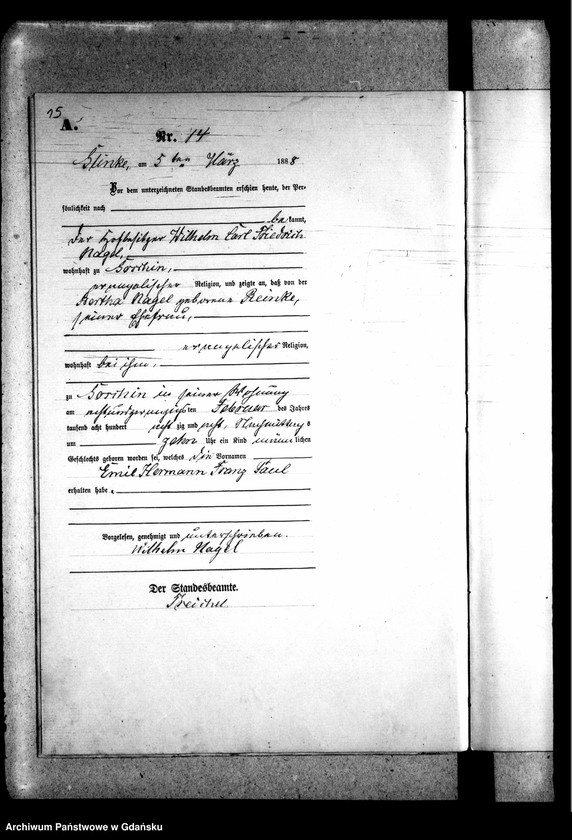 15
A.
Nr. 14
Glinke, am 5 ten März 1888
Vor dem unterzeichneten Standesbeamten erschien heute, der Per-
sönlichkeit nach
bekannt,
der Hofbesitzer Wilhelm Carl Friedrich
Nagel,
wohnhaft zu
evangelischer Religion, und zeigte an, daß von der
Bertha Nagel geborene Reinke,
seiner Ehefrau,
evangelischer Religion,
wohnhaft bei ihm,
zu in seiner Wohnung
am achtundzwanzigsten Februar des Jahres
tausend acht hundert acht zig und acht, Nachmittags
um zehn Uhr ein Kind männlichen
Geschlechts geboren worden sei, welches die Vornamen
Emil Hermann Franz Paul
erhalten habe.
Vorgelesen, genehmigt und unterschrieben.
Wilhelm Nagel
Der Standesbeamte.
Treichel
Archiwum Państwowe w Gdańsku